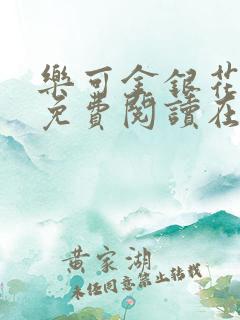 樂可金銀花
免費閱讀在
黄家湖
未经同意禁止转载